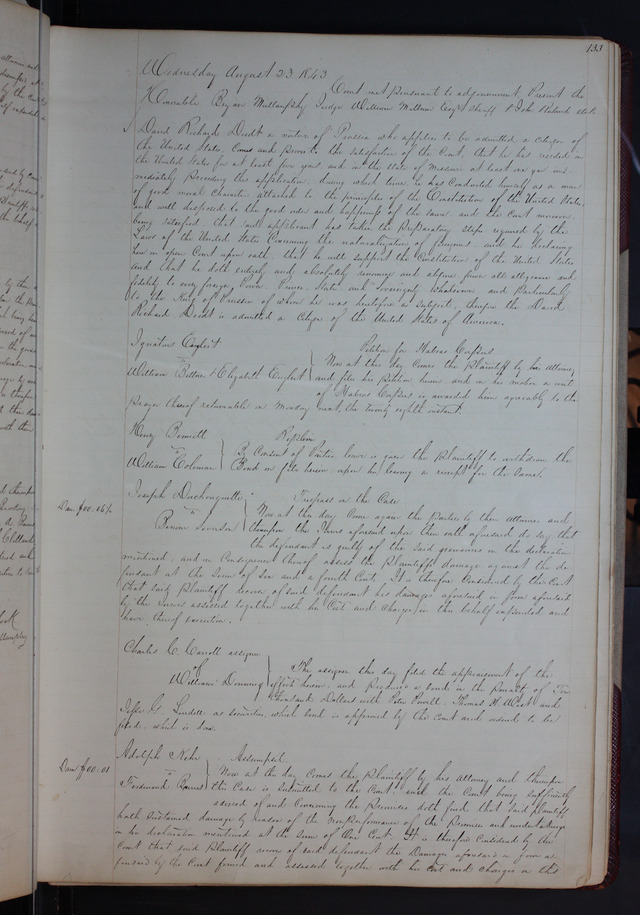 133
Wednesday August 23 1843
Court met pursuant to adjournment, Present the
Honorable Bryan Mullanphy Judge William Milburn Esqr Sheriff & John Ruland clerk
David Richards Deedt a native of Prussia who applies to be admitted a citizen of
the United States, Comes and proves to the satisfaction of the Court, that he has resided in
the United States for at least five years, and in the state of Missouri at least one year im-
mediately preceding this application, during which time he has conducted himself as a man
of good moral character attached to the principles of the Constitution of the United States
and well disposed to the good order and happiness of the same and the Court moreover,
being satisfied that said applicant has taken the preparatory steps required by the
Laws of the United States Concerning the naturalization of foreigners and he declaring
here in open Court upon oath, that he will support the Constitution of the United States
and that he doth entirely and absolutely renounce and abjure forever all allegiance and
fidelity to every foreign Power, Prince, State and Sovereignty whatsoever and particularly
to the King of Prussia of whom he was heretofore a subject, therefore the David
Richard Deedt is admitted a Citizen of the United States of America.
Ignatius
Petition for Habeas Corpus
Now at this day Comes the plaintiff by his Attorney
William & Elizabeth
and files his petition herein and on his motion a writ
of Habeas Corpus is awarded him agreeably to the
prayer thereof returnable on Monday next, the twenty eighth instant
Henry Bennett
vs
Replevin
By Consent of Parties leave is given the plaintiff to withdraw the
William Colman
Bond on file herein upon his leaving a receipt for the same.
Joseph Duchouquette
vs
Trespass on the Case
Dam $00.06¼
Now at this day Come again the Parties by their Attornies and
thereupon the Jurors aforesaid upon their oath aforesaid do say that
the defendant is guilty of the said grievances in the declaration
mentioned, and in Consequence thereof assess the plaintiffs damage against the de-
fendant at the sum of Six and a fourth Cents, It is therefore Considered by the Court
that said plaintiff recover of said defendant his damages aforesaid in form aforesaid
by the Jurors assessed together with his Cost and Charges in this behalf expended and
have thereof execution.
Charles C. Carroll assignee
of
The assignee this day filed the appraisement of the
William Denning
effects herein, and produces a bond in the penalty of Ten
Thousand Dollars with Peter Powell, Thomas H. West and
Jesse G. Lindell as securities, which bond is approved by the Court and ordered to be
filed, which is done.
Adolph
vs
Assumpsit.
Dam $00.01
Now at this day Comes the plaintiff by his attorney and thereupon
Ferdinand
this Case is submitted to the Court, and the Court being sufficiently
advised of and Concerning the Premises doth find that said plaintiff
hath sustained damage by reason of the non performance of the Promises and undertakings
in the declaration mentioned at the sum of One Cent. It is therefore Considered by the
Court that said plaintiff recover of said defendant the Damages aforesaid in form a-
foresaid by the Court found and assessed together with his Cost and Charges in this